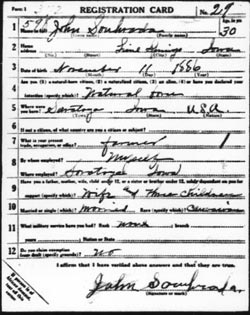 Form 1
REGISTRATION CARD
No. 29
1 Name in full John Souhrada
Age, in yrs. 30
2 Home address Lime Springs Iowa
3 Date of birth November 11 1886
4 Are you (1) a natural-born citizen, (2) a naturalized citizen, (3) an alien, (4) or have you declared your intention (specify which)? Natural born
5 Where were you born? Saratoga Iowa U.S.A
6 If not a citizen, of what country are you a citizen or subject?
7 What is your present trade, occupation, or office? farmer
8 By whom employed? Myself
Where employed? Saratoga Iowa
9 Have you a father, mother, wife, child under 12, or a sister or brother under 12, solely dependent on you for support (specify which)? Wife & three Children
10 Married or single (which)? Married Race (specify which)? Caucasian
11 What military service have you had? Rank none
years Nation or State
12 Do you claim exemption from draft (specify grounds)? no
I affirm that I have verified above answers and that they are true.
John Souhrada
(Signature or mark)